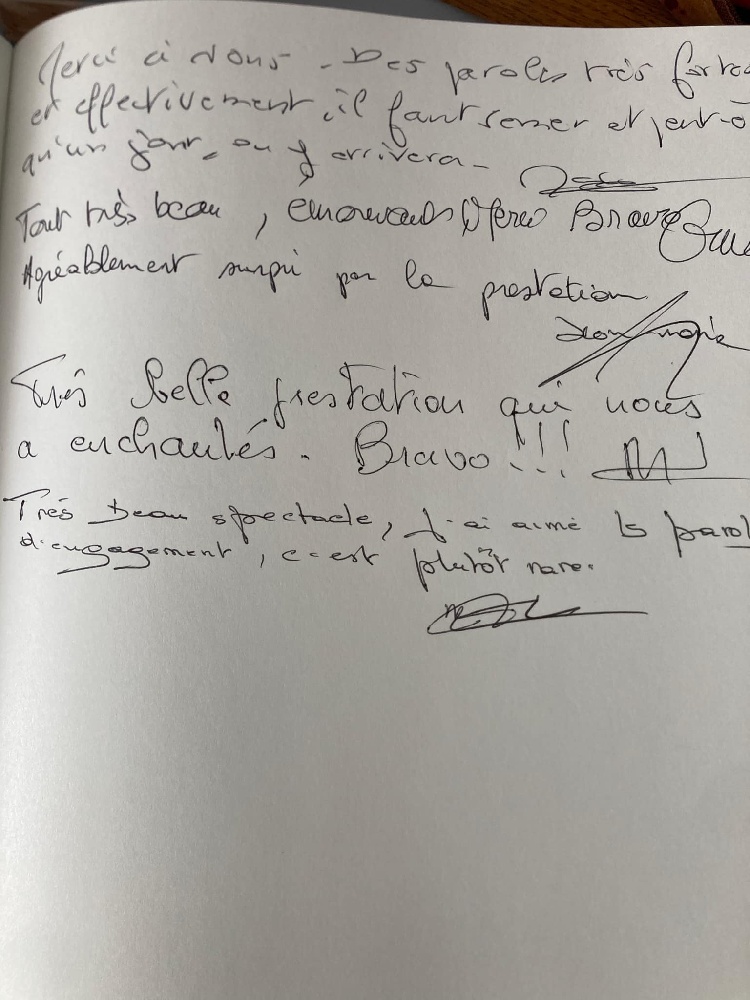 Merci à vous. Des paroles très fortes
et effectivement, il faut semer et peut-ê
qu'un jour, on y arrivera.
Tout très beau, émouvant, Merci Bravo
Agréablement surpri par la prestation
Très belle prestation qui nous
a enchantés. Bravo !!!
Très beau spectacle, j'ai aimé la parol
d'engagement, c'est plutôt rare.